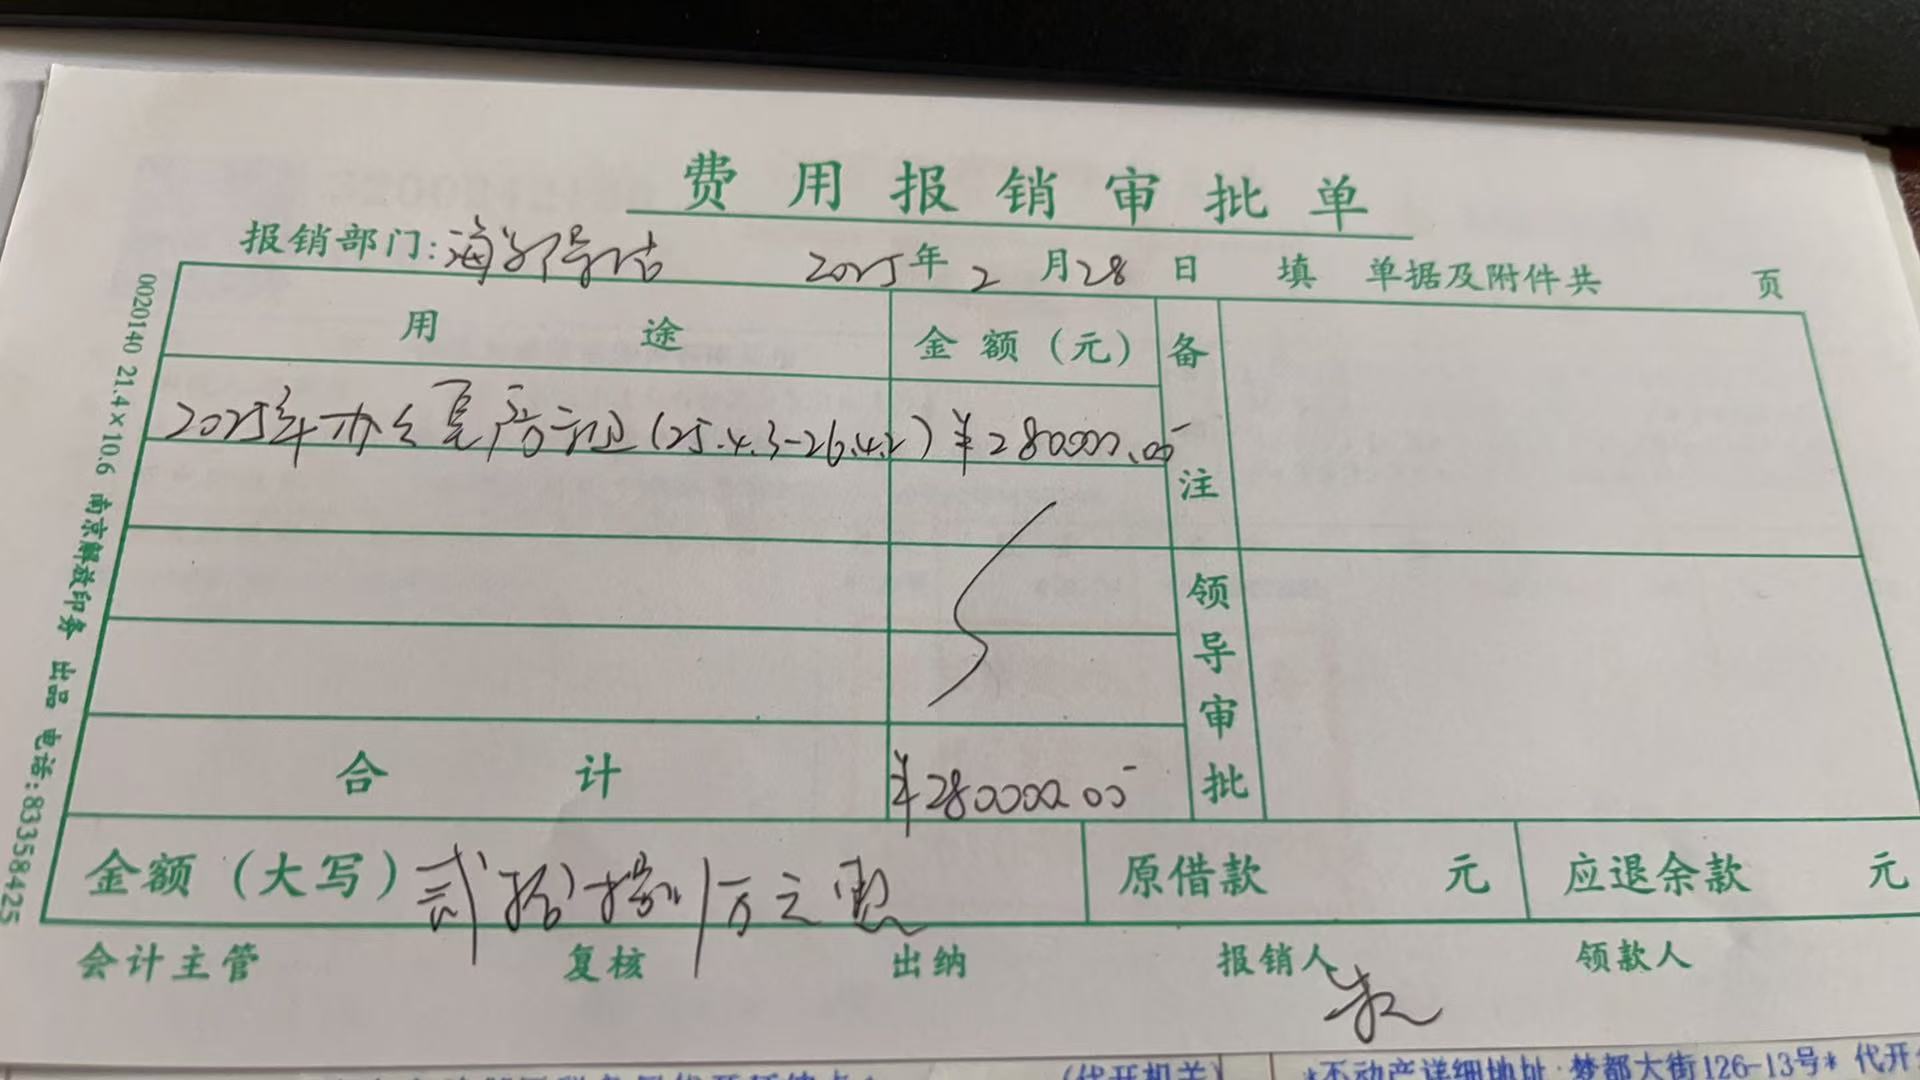 费用报销审批单
报销部门: 2025年2月28日 填 单据及附件共 页
用途 金额(元) 备注
2025年办公(25.4.3-26.4.2) ¥280000.00
领导审批
合计 ¥280000.00
金额(大写) 贰拾捌万元 原借款 元 应退余款 元
会计主管 复核 出纳 报销人 领款人
0020140 21.4×10.6 南京解放印务 出品 电话:83358425
(代开机关) *不动产详细地址:梦都大街126-13号* 代开